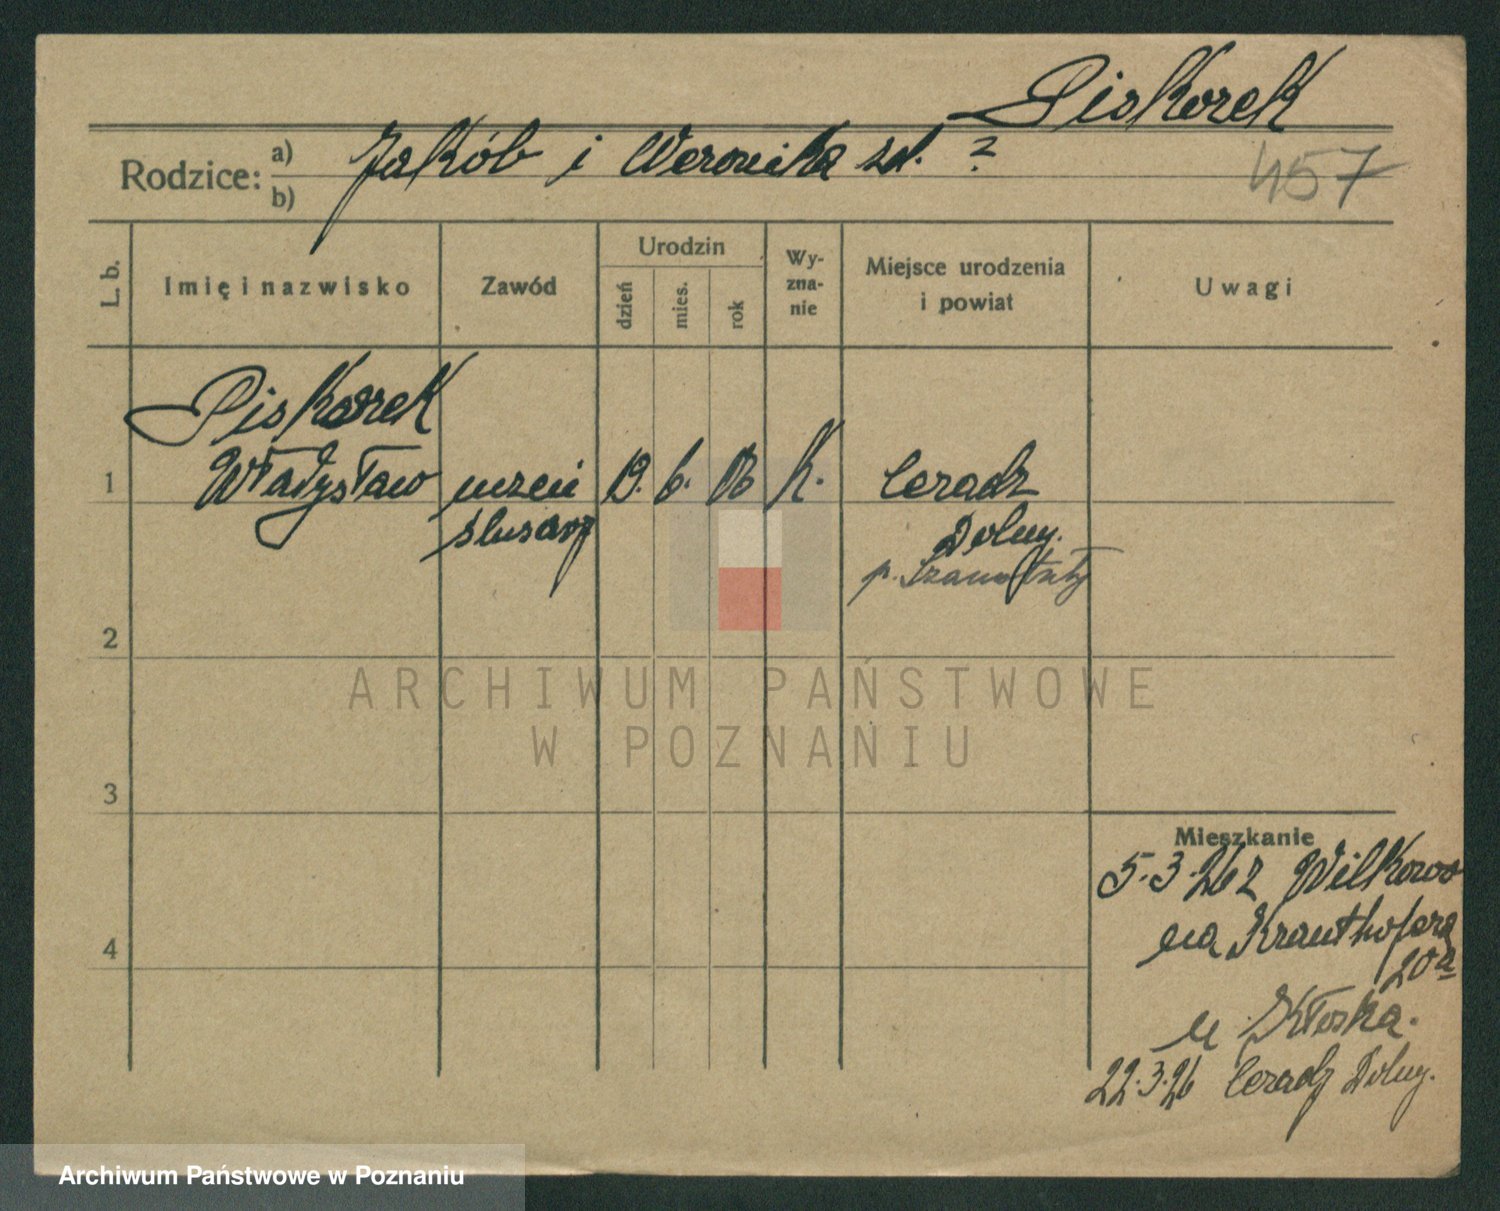 Piskorek
Rodzice: a) Jakób i Weronika zd. ?
b)
457
L. b.
Imię i nazwisko
Zawód
Urodzin
dzień
mies.
rok
Wy-
zna-
nie
Miejsce urodzenia
i powiat
Uwagi
Piskorek
1 Władysław uczeń 19. 6. K. Ceradz
ślusarz Dolny.
p. Szamotuły
2
ARCHIWUM PAŃSTWOWE
W POZNANIU
3
Mieszkanie
5.3.26 z Wilkowo
na Krauthofera
4
20a
u
22.3.26 Ceradz Dolny.
Archiwum Państwowe w Poznaniu